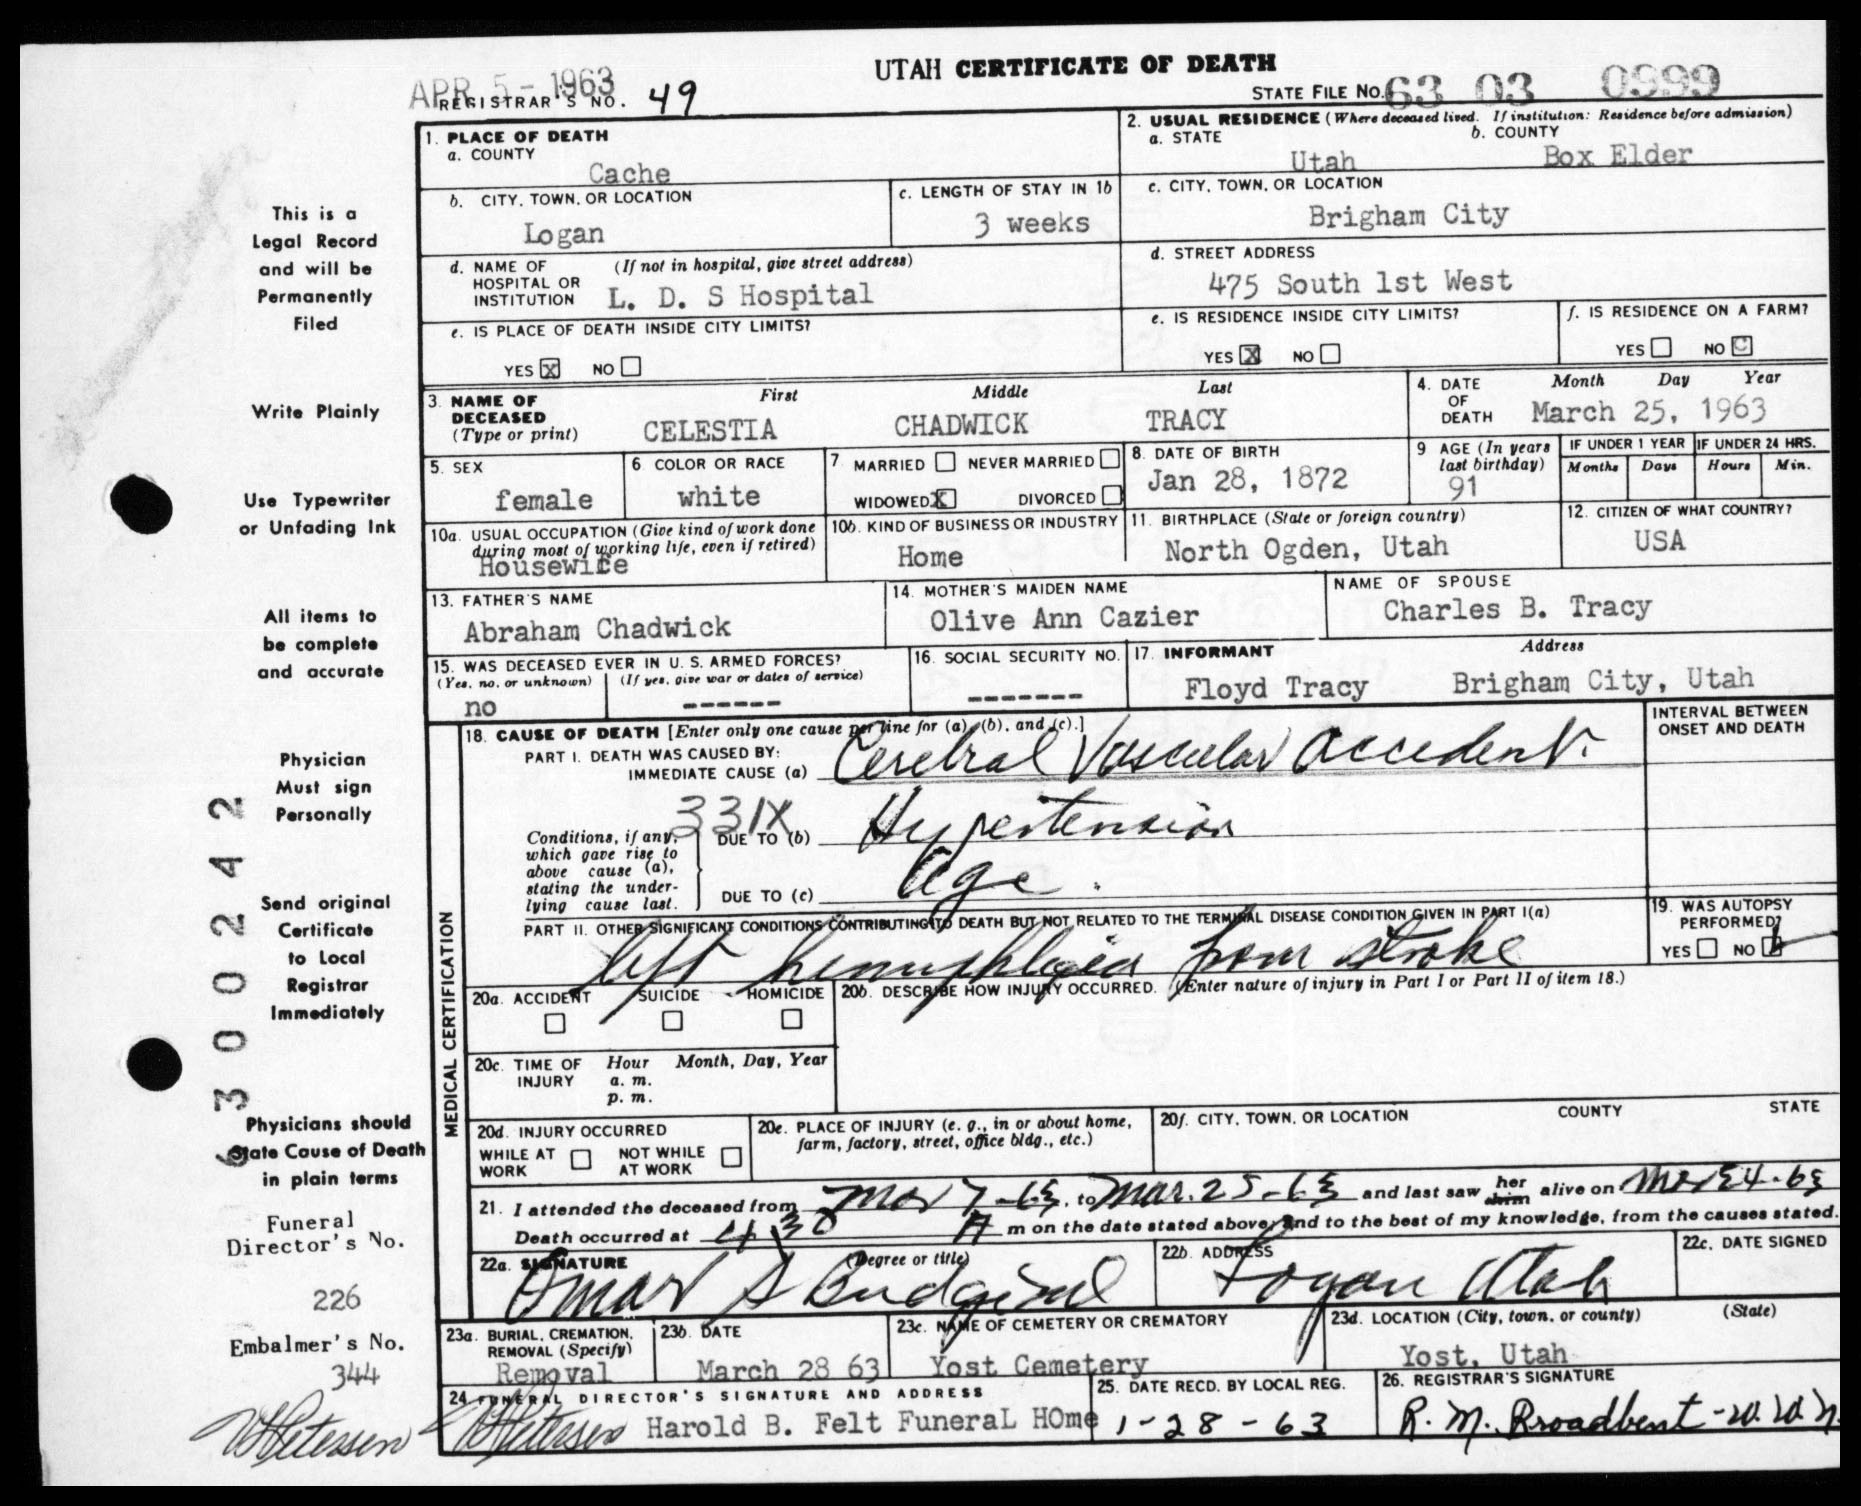 UTAH CERTIFICATE OF DEATH
APR 5 - 1963
REGISTRAR'S NO. 49
STATE FILE NO. 63 03 0999
1. PLACE OF DEATH
a. COUNTY
Cache
2. USUAL RESIDENCE (Where deceased lived. If institution: Residence before admission)
a. STATE b. COUNTY
Utah Box Elder
b. CITY, TOWN, OR LOCATION
Logan
c. LENGTH OF STAY IN 1b
3 weeks
c. CITY, TOWN, OR LOCATION
Brigham City
d. NAME OF HOSPITAL OR INSTITUTION (If not in hospital, give street address)
L. D. S Hospital
d. STREET ADDRESS
475 South 1st West
e. IS PLACE OF DEATH INSIDE CITY LIMITS?
YES X NO
e. IS RESIDENCE INSIDE CITY LIMITS?
YES X NO
f. IS RESIDENCE ON A FARM?
YES NO C
3. NAME OF DECEASED (Type or print)
First Middle Last
CELESTIA CHADWICK TRACY
4. DATE OF DEATH
Month Day Year
March 25, 1963
5. SEX
female
6 COLOR OR RACE
white
7 MARRIED NEVER MARRIED
WIDOWED X DIVORCED
8. DATE OF BIRTH
Jan 28, 1872
9 AGE (In years last birthday)
91
IF UNDER 1 YEAR
Months Days
IF UNDER 24 HRS.
Hours Min.
10a. USUAL OCCUPATION (Give kind of work done during most of working life, even if retired)
Housewife
10b. KIND OF BUSINESS OR INDUSTRY
Home
11. BIRTHPLACE (State or foreign country)
North Ogden, Utah
12. CITIZEN OF WHAT COUNTRY?
USA
13. FATHER'S NAME
Abraham Chadwick
14. MOTHER'S MAIDEN NAME
Olive Ann Cazier
NAME OF SPOUSE
Charles B. Tracy
15. WAS DECEASED EVER IN U. S. ARMED FORCES?
(Yes, no, or unknown) (If yes, give war or dates of service)
no ------
16. SOCIAL SECURITY NO.
-------
17. INFORMANT Address
Floyd Tracy Brigham City, Utah
MEDICAL CERTIFICATION
18. CAUSE OF DEATH [Enter only one cause per line for (a), (b), and (c).]
INTERVAL BETWEEN ONSET AND DEATH
PART I. DEATH WAS CAUSED BY:
IMMEDIATE CAUSE (a) Cerebral Vascular Accident.
331X
Conditions, if any, which gave rise to above cause (a), stating the underlying cause last.
DUE TO (b) Hypertension
DUE TO (c) Age.
PART II. OTHER SIGNIFICANT CONDITIONS CONTRIBUTING TO DEATH BUT NOT RELATED TO THE TERMINAL DISEASE CONDITION GIVEN IN PART I(a)
left hemiphlegia from stroke
19. WAS AUTOPSY PERFORMED?
YES NO
20a. ACCIDENT SUICIDE HOMICIDE
20b. DESCRIBE HOW INJURY OCCURRED. (Enter nature of injury in Part I or Part II of item 18.)
20c. TIME OF INJURY
Hour Month, Day, Year
a. m.
p. m.
20d. INJURY OCCURRED
WHILE AT WORK NOT WHILE AT WORK
20e. PLACE OF INJURY (e. g., in or about home, farm, factory, street, office bldg., etc.)
20f. CITY, TOWN, OR LOCATION COUNTY STATE
21. I attended the deceased from Mar 7-63, to Mar. 25-63 and last saw her him alive on Mar 24-63
Death occurred at 4:30 A m on the date stated above, and to the best of my knowledge, from the causes stated.
22a. SIGNATURE (Degree or title)
Omar S Budge md
22b. ADDRESS
Logan Utah
22c. DATE SIGNED
23a. BURIAL, CREMATION, REMOVAL (Specify)
Removal
23b. DATE
March 28 63
23c. NAME OF CEMETERY OR CREMATORY
Yost Cemetery
23d. LOCATION (City, town, or county) (State)
Yost, Utah
24 FUNERAL DIRECTOR'S SIGNATURE AND ADDRESS
Harold B. Felt FuneraL HOme
25. DATE RECD. BY LOCAL REG.
1-28-63
26. REGISTRAR'S SIGNATURE
R. M. Broadbent
This is a
Legal Record
and will be
Permanently
Filed
Write Plainly
Use Typewriter
or Unfading Ink
All items to
be complete
and accurate
Physician
Must sign
Personally
Send original
Certificate
to Local
Registrar
Immediately
Physicians should
State Cause of Death
in plain terms
6300242
Funeral
Director's No.
226
Embalmer's No.
344